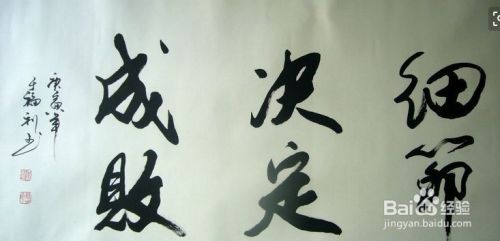 细节
决定
成败
庚寅年
于福利书
Baidu经验
jingyan.baidu.com